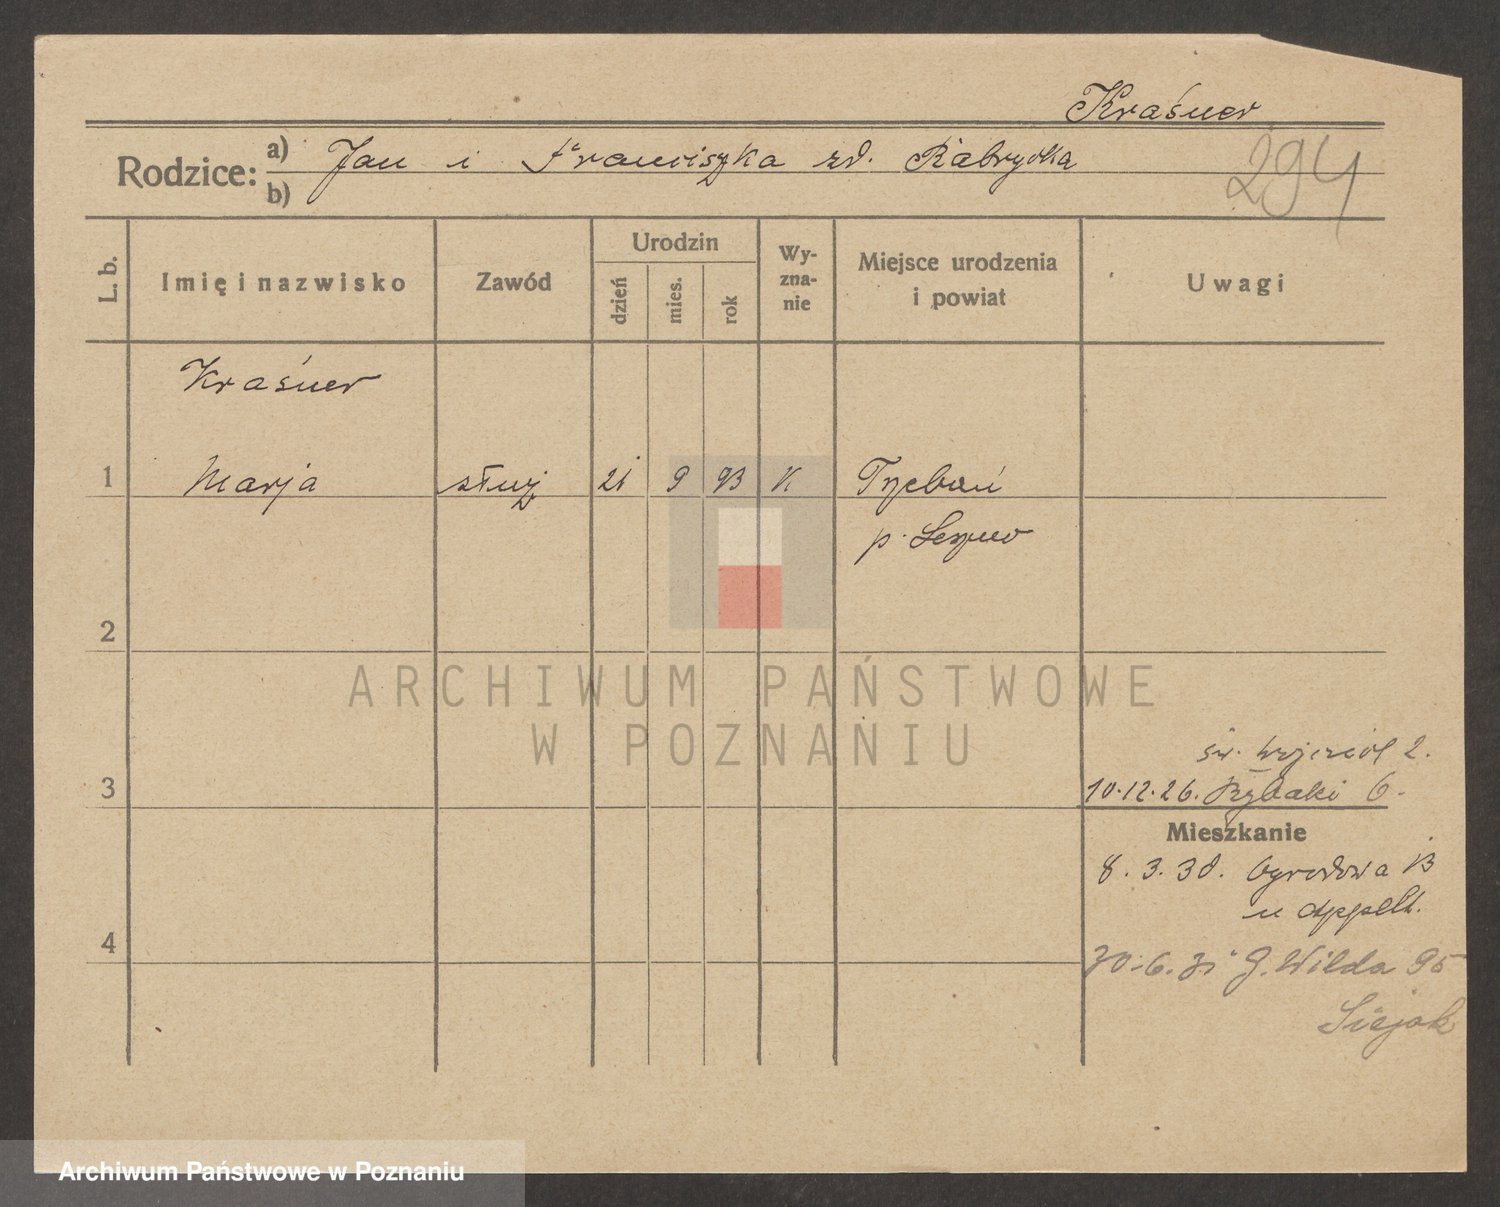 Kraśner
Rodzice: a) Jan i Franciszka zd. Rabrycka
b)
294
L. b.
Imię i nazwisko
Zawód
Urodzin
dzień
mies.
rok
Wy-
zna-
nie
Miejsce urodzenia
i powiat
Uwagi
Kraśner
1 Marja służ 21 9 93 K
p.
2
ARCHIWUM PAŃSTWOWE
W POZNANIU
św. Wojciech 2.
3
10.12.26. Rybaki 6.
Mieszkanie
8. 3. 30. Ogrodowa 13
u
4
30.6.31 G. Wilda 95
Archiwum Państwowe w Poznaniu